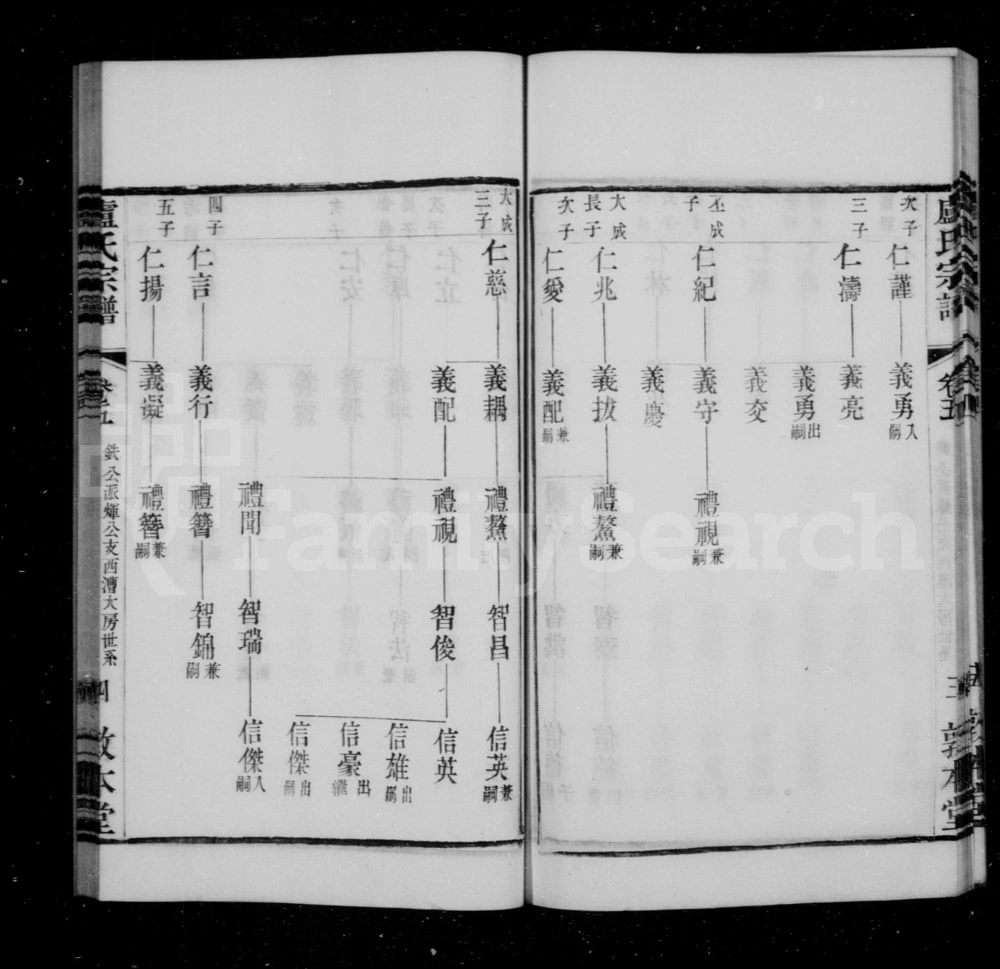 盧氏宗譜
卷五
三
敦本堂
次子 仁謹 義勇 入嗣
三子 仁濤 義亮
義勇 出嗣
義交
丕成子 仁紀 義守 禮視 兼嗣
義慶
大成長子 仁兆 義拔 禮鰲 兼嗣
次子 仁愛 義配 兼嗣
大成三子 仁慈 義耦 禮鰲 智昌 信英 兼嗣
義配 禮視 智俊 信英
信雄 出嗣
信豪 出繼
信傑 出嗣
禮聞 智瑞 信傑 入嗣
四子 仁言 義行 禮簪 智錦 兼嗣
五子 仁揚 義礙 禮簪 兼嗣
盧氏宗譜
卷五
公派煇公支西漕大房世系
四
敦本堂
FamilySearch